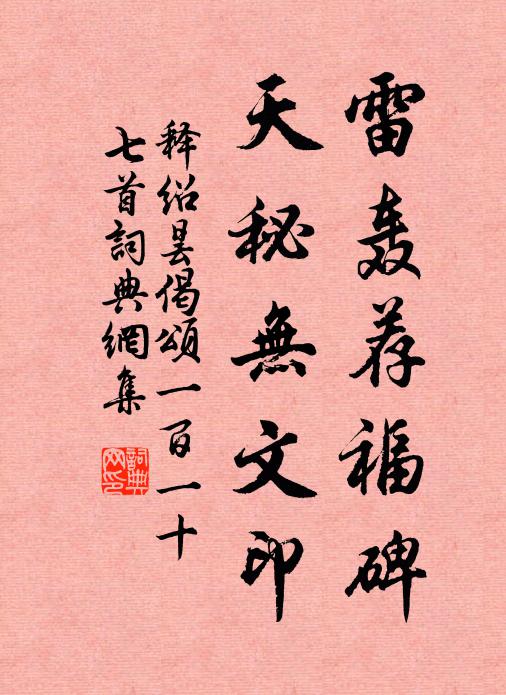 雷轰荐福碑
天秘無文印
释绍昙偈頌一百一十
七首詞典網集
詞典網印